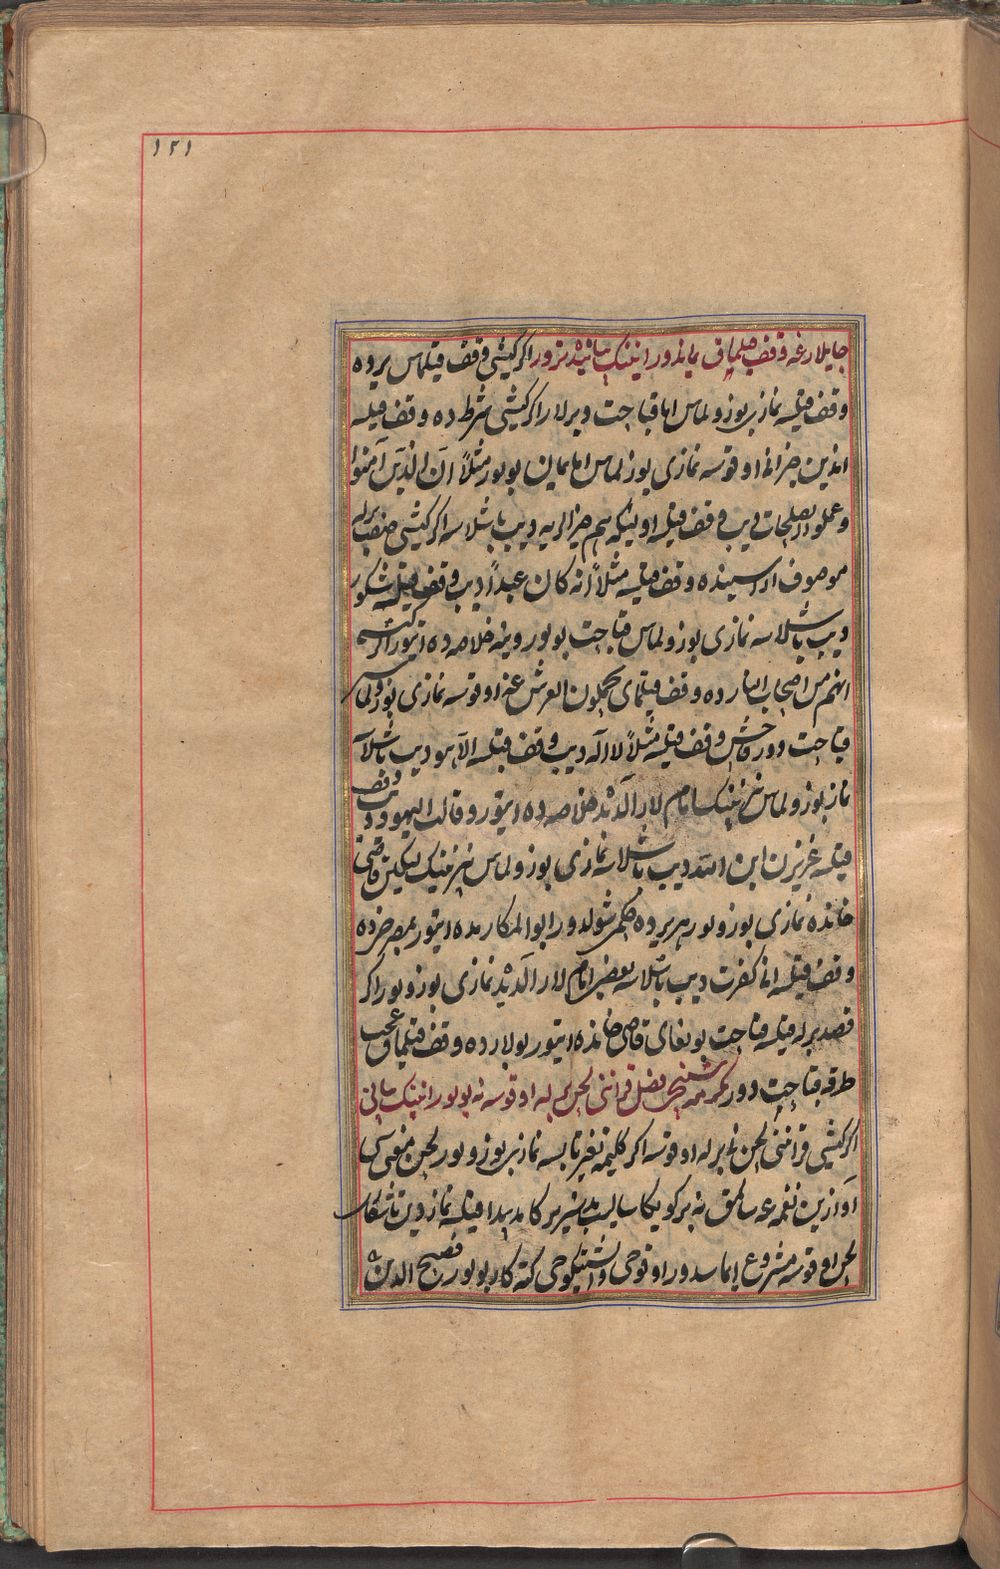 ۱۲۱
جایلارغه وقف قیلماق یمانذور اینینک بیانیدیدور اکر کیشی وقف قیلماس یرده
وقف قیلسه نمازیں بوزولماس اما قباحت دیرلار اکر کیشی شرط ده وقف قیلسه
اندین جزانی اوقوسه نمازی بوزلماس اما یمان بولور مثلاً ان الذین آمنوا
وعملوا الصلحات دیب وقف قیلسه اولئک هم خیر البریه دیب باشلاسه اکر کیشی صفت برله
موصوف اراسینده وقف قیلسه مثلاً انه کان عبداً دیب وقف قیلسه شکور
دیب باشلاسه نمازی بوزولماس قباحت بولور وینه خلاصه ده ایتور اکر کیشی
انهم من اصحاب النار ده وقف قیلمای یحملون العرش غه اوقوسه نمازی بوزولماس
قباحت دور فاحش وقف قیلسه مثلاً لا اله دیب وقف قیلسه الا هو دیب باشلاسه
نماز بوزولماس بیزنینک امام لار الدیده خلاصه ده ایتور وقالت الیهود دیب وقف
قیلسه عزیزن ابن الله دیب باشلاسه نمازی بوزولماس بیزنینک لیکین قاضی
خانده نمازی بوزولور هر یرده حکمی شولدور ابوالمکارمده ایتور بعضر خزده
وقف قیلسه انا کفرت دیب باشلاسه بعض امام لار الدیده نمازی بوزولور اکر
قصد برله قیلسه قباحت بولغای قاضی خانده ایتور بولارده وقف قیلماق عجب
طرقه قباحت دور یکرمه فصل قرانی لحن برله اوقوسه نه بولور اینینک بیانی
اکر کیشی قرانی لحن برله اوقوسه اکر کلیمه تغیر تابسه نمازیں بوزولور لحن معنی سی
آوازین نغمه غه سالمق نه برکویکا سالیب بیربرکا مد پیدا قیلسه نمازدین تاشقاری
لحن اوقوسه مشروع ایماسدور اوقوچی و ایشتکوچی کنه کار بولور فصیح الدین